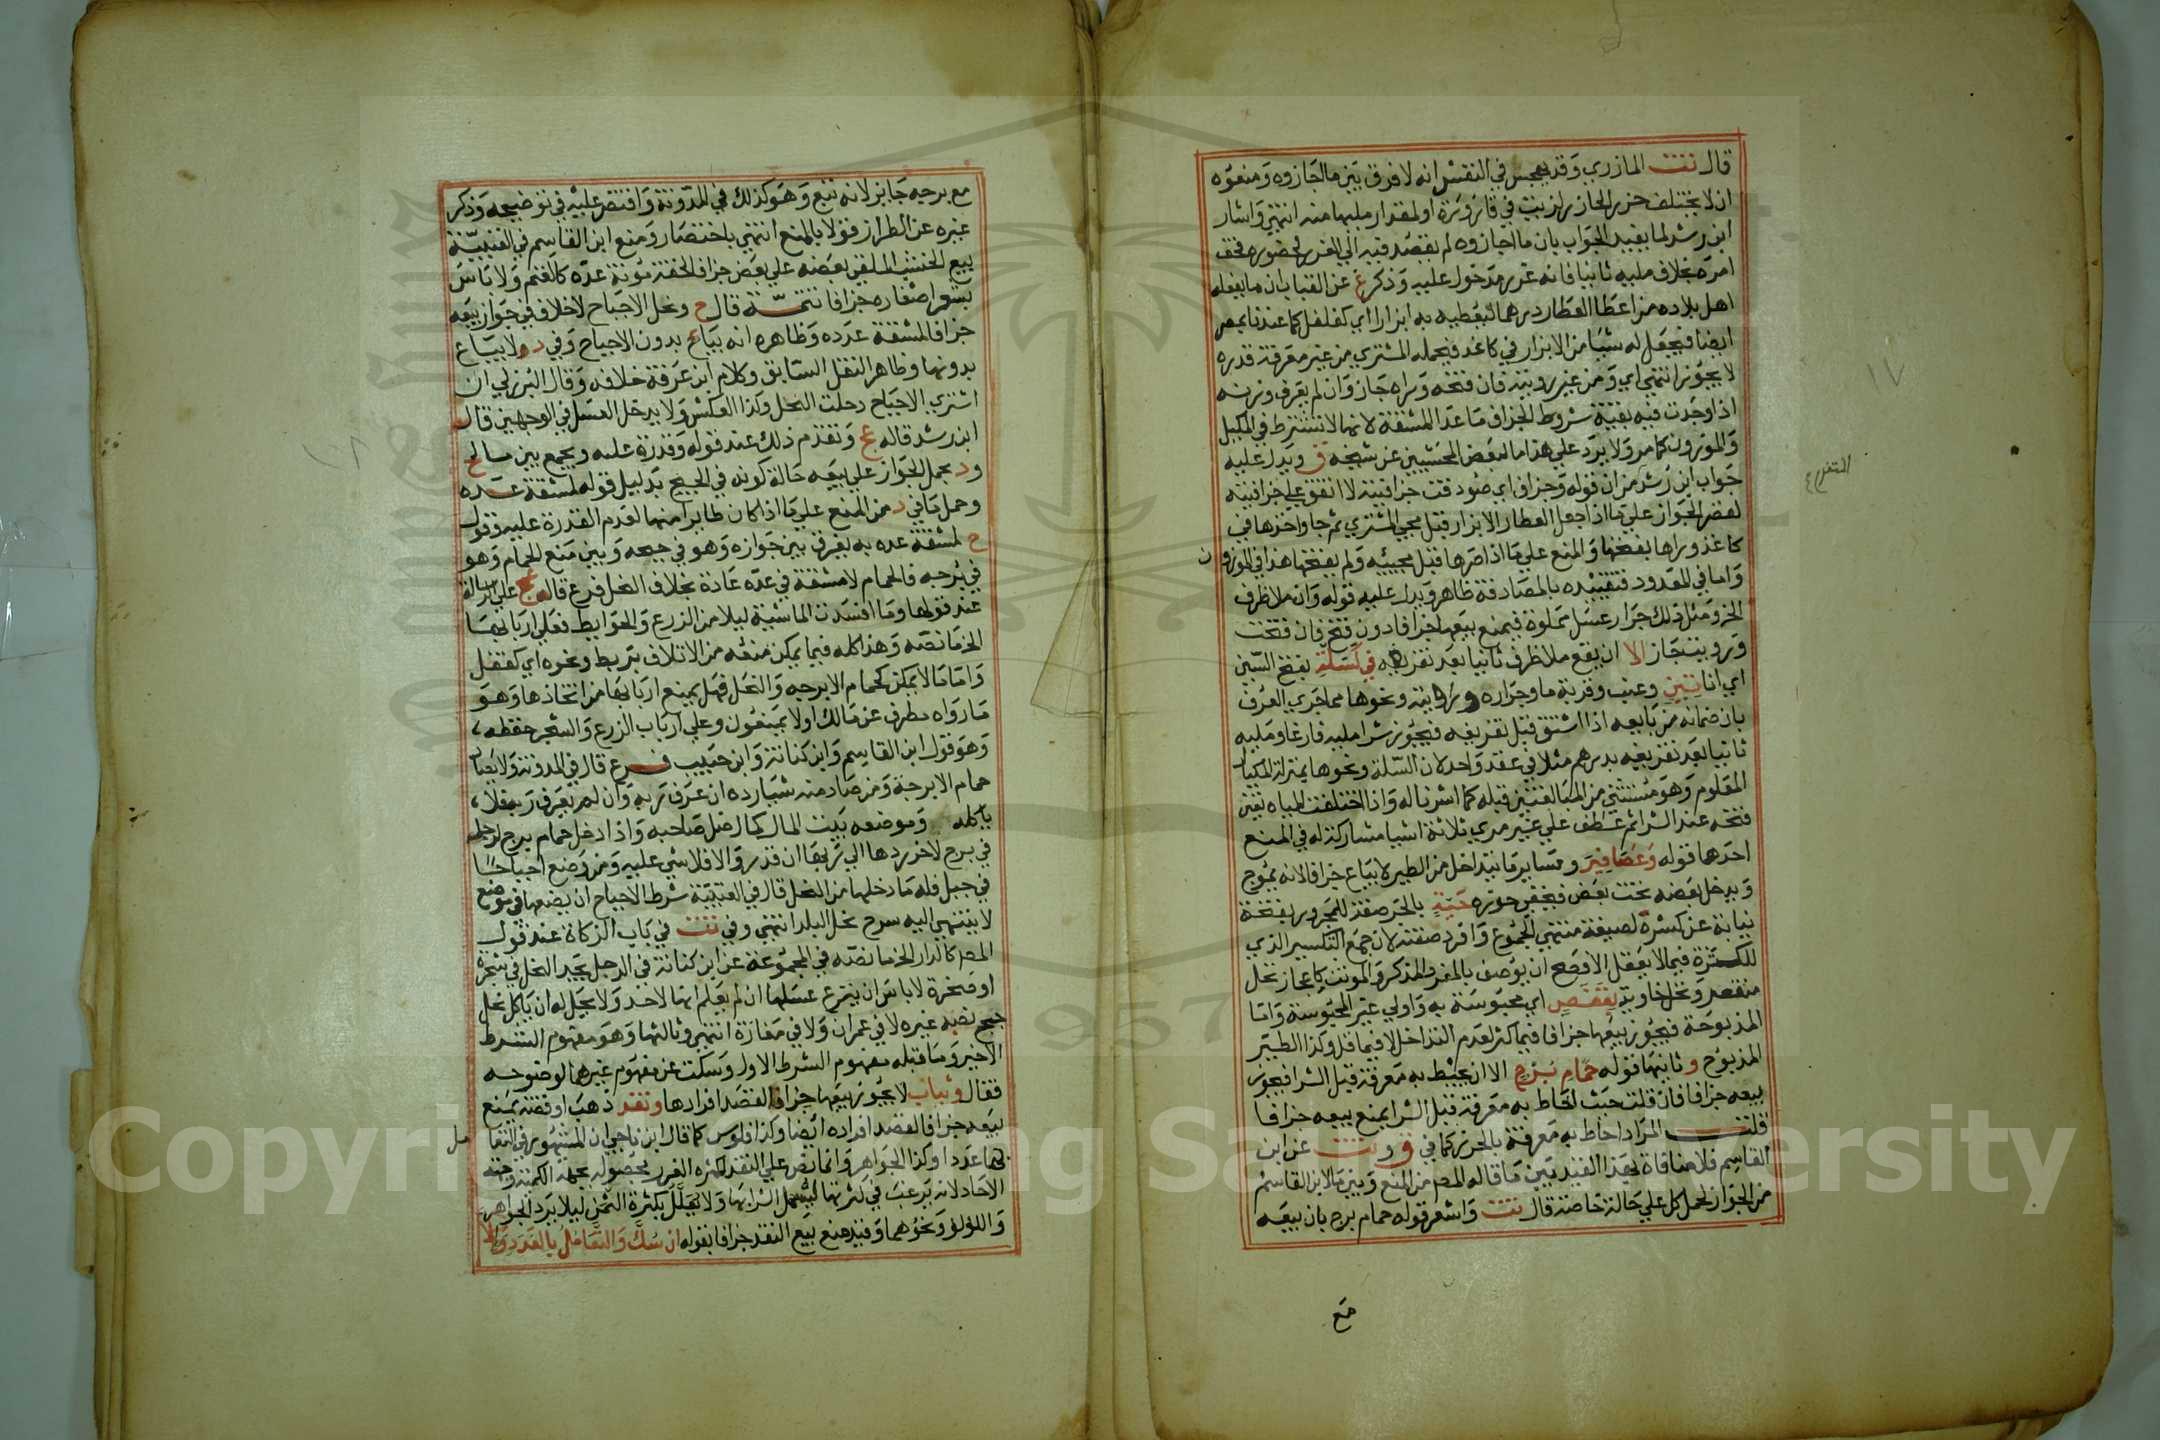 قال تت المازري وقد يهجس في النفس انه لا فرق بين ما اجازوه ومنعوه
ان لا يختلف حزر الحازر لزيت في قارورة او لمقدار مليها منه انتهي واشار
ابن رشد لما يفيد الجواب بان ما اجازوه لم يقصد فيه الي الغرر لحضوره فخف
امره بخلاف مليه ثانيا فانه غرر مدخول عليه وذكر غ عن القباب ان ما يفعله
اهل بلاده من اعطا العطار درهما ليعطيه به ابزارا اي كفلفل كما عندنا بمصر
ايضا فيجعل له شيا من الابزار في كاغد فيحمله المشتري من غير معرفة قدره
لا يجوز انتهي اي ومن غير روية فان فتحه وراه جاز وان لم يعرف وزنه
اذا وجدت فيه بقية شروط الجزاف ما عدا المشقة لانها لا تشترط في المكيل
والموزون كما مر ولا يرد علي هذا ما لبعض المحشيين عن شيخه ق ويدل عليه
جواب ابن رشد من ان قوله وجزاف اي صودفت جزافيته لا اتفق علي جزافيته
لفض الجواز علي ما اذا جعل العطار الابزار قبل مجي المشتري ثم جا واخذها في
كاغد وراها بفتحها والمنع علي ما اذا صرها قبل مجيئه ولم يفتحها هذا في الموزون
واما في المعدود فتقييده بالمصادفة ظاهر ويدل عليه قوله وان ملا ظرف
الخ ومثل ذلك جرار عسل مملوة فيمنع بيعها جزافا دون فتح فان فتحت
وروءيت جاز الا ان يقع ملا ظرف ثانيا بعد تفريغه في كسلة بفتح السين
اي انا تين وعنب وقربة ما وجراره وراوية ونحوها مما جري العرف
بان ضمانه من بايعه اذا انشق قبل تفريغه فيجوز شرا مليه فارغا ومليه
ثانيا بعد تفريغه بدرهم مثلا في عقد واحد لان السلة ونحوها بمنزلة المكيال
المعلوم وهو مستثني من المبالغتين قبله كما اشرنا له واذا اختلفت المياه تعين
فتحه عند الشرا ثم عطف علي غير مري ثلاثة اشيا مشاركة له في المنع
احدها قوله وعصافير وساير ما يتداخل من الطير لا يباع جزافا لانه يموج
ويدخل بعضه تحت بعض فيخفي حوزه حية بالجر صفة للمجرور بفتحة
نيابة عن كسرة لصيغة منتهي الجموع وافرد صفته لان جمع التكسير الذي
للكثرة فيما لا يعقل الافصح ان يوصف بالمفرد المذكر والمونث كاعجاز نخل
منقعر ونخل خاوية بقفص اي محبوسة به واولي غير المحبوسة واما
المذبوحة فيجوز بيعها جزافا فيما كثر لعدم التداخل لا فيما قل وكذا الطير
المذبوح وثانيها قوله حمام برج الا ان يحيط به معرفة قبل الشرا فيجوز
بيعه جزافا فان قلت حيث احاط به معرفة قبل الشرا يمنع بيعه جزافا
قلت المراد احاط به معرفة بالحزر كما في ق و تت عن ابن
القاسم فلا منافاة لهذا القيد بين ما قاله المص من المنع وبين ما لابن القاسم
من الجواز لحمل كل علي حالة خاصة قال تت واشعر قوله حمام برج بان بيعه
مع
المتفرع
مع برجه جايز لانه تبع وهو كذلك في المدونة واقتصر عليه في توضيحه وذكر
غيره عن الطراز قولا بالمنع انتهي باختصار ومنع ابن القاسم في العتبية
بيع الخشب الملقي بعضه علي بعض جزافا لخفة مونة عده كالغنم ولا باس
بشرا صغاره جزافا تتمة قال ح ونحل الاجباح لا خلاف في جواز بيعه
جزافا لمشقة عدده وظاهره انه يباع بدون الاجباح وفي د ولا يباع
بدونها وظاهر النقل السابق وكلام ابن عرفة خلافه وقال البرزلي ان
اشتري الاجباح دخلت النحل وكذا العكس ولا يدخل العسل في الوجهين قال
ابن رشد قاله عج وتقدم ذلك عند قوله وقدرة عليه ويجمع بين ما لح
ود بحمل الجواز علي بيعه حالة كونه في الجبح بدليل قوله لمشقة عده
وحمل ما في د من المنع علي ما اذا كان طايرا منها لعدم القدرة عليه وقول
ح لمشقة عده به يفرق بين جوازه وهو في جبحه وبين منع الحمام وهو
في برجه فالحمام لا مشقة في عده عادة بخلاف النحل فرع قال عج علي الرسالة
عند قولها وما افسدت الماشية ليلا من الزرع والحوايط فعلي اربابها
الخ ما نصه وهذا كله فيما يمكن منعه من الاتلاف بربط ونحوه اي كقفل
واما ما لا يمكن كحمام الابرجه والنحل فهل يمنع اربابها من اتخاذها وهو
ما رواه مطرف عن مالك اولا يمنعون وعلي ارباب الزرع والشجر حفظه
وهو قول ابن القاسم وابن كنانة وابن حبيب فرع قال في المدونة ولا يصاد
حمام الابرجة ومن صاد منه شيا رده ان عرف ربه وان لم يعرف ربه فلا
ياكله وموضعه بيت المال كمال ضل صاحبه واذا دخل حمام برج لرجل
في برج لاخر ردها الي ربها ان قدر والا فلا شي عليه ومن وضع اجباحا
في جبل فله ما دخلها من النحل قال في العتبية شرط الاجباح ان يضعها في موضع
لا ينتهي اليه سرح نحل البلد انتهي وفي تت في باب الزكاة عند قول
المص كالدار الخ ما نصه في المجموعة عن ابن كنانة في الرجل يجد النحل في شجرة
او صخرة لا باس ان ينزع عسلها ان لم يعلم انها لاحد ولا يحل له ان ياكل نحل
جبح نصبه غيره لا في عمران ولا في مفازة انتهي وثالثها وهو مفهوم الشرط
الاخير وما قبله مفهوم الشرط الاول وسكت عن مفهوم غيرهما لوضوحه
فقال وثياب لا يجوز بيعها جزافا لقصد افرادها ونقد ذهب او فضة يمنع
بيعه جزافا لقصد افراده ايضا وكذا فلوس كما قال ابن ناجي ان المشهور في التعامل
بها عددا وكذا الجواهر وانما نص علي النقد لكثرة الغرر بحصوله بجهة الكمية وجهة
الاحاد لانه يرغب في كثرتها ليسهل الشرا بها ولا يعلل بكثرة الثمن ليلا يرد الجواهر
واللولو ونحوهما وقيد منع بيع النقد جزافا بقوله ان سك والتعامل بالعدد والا